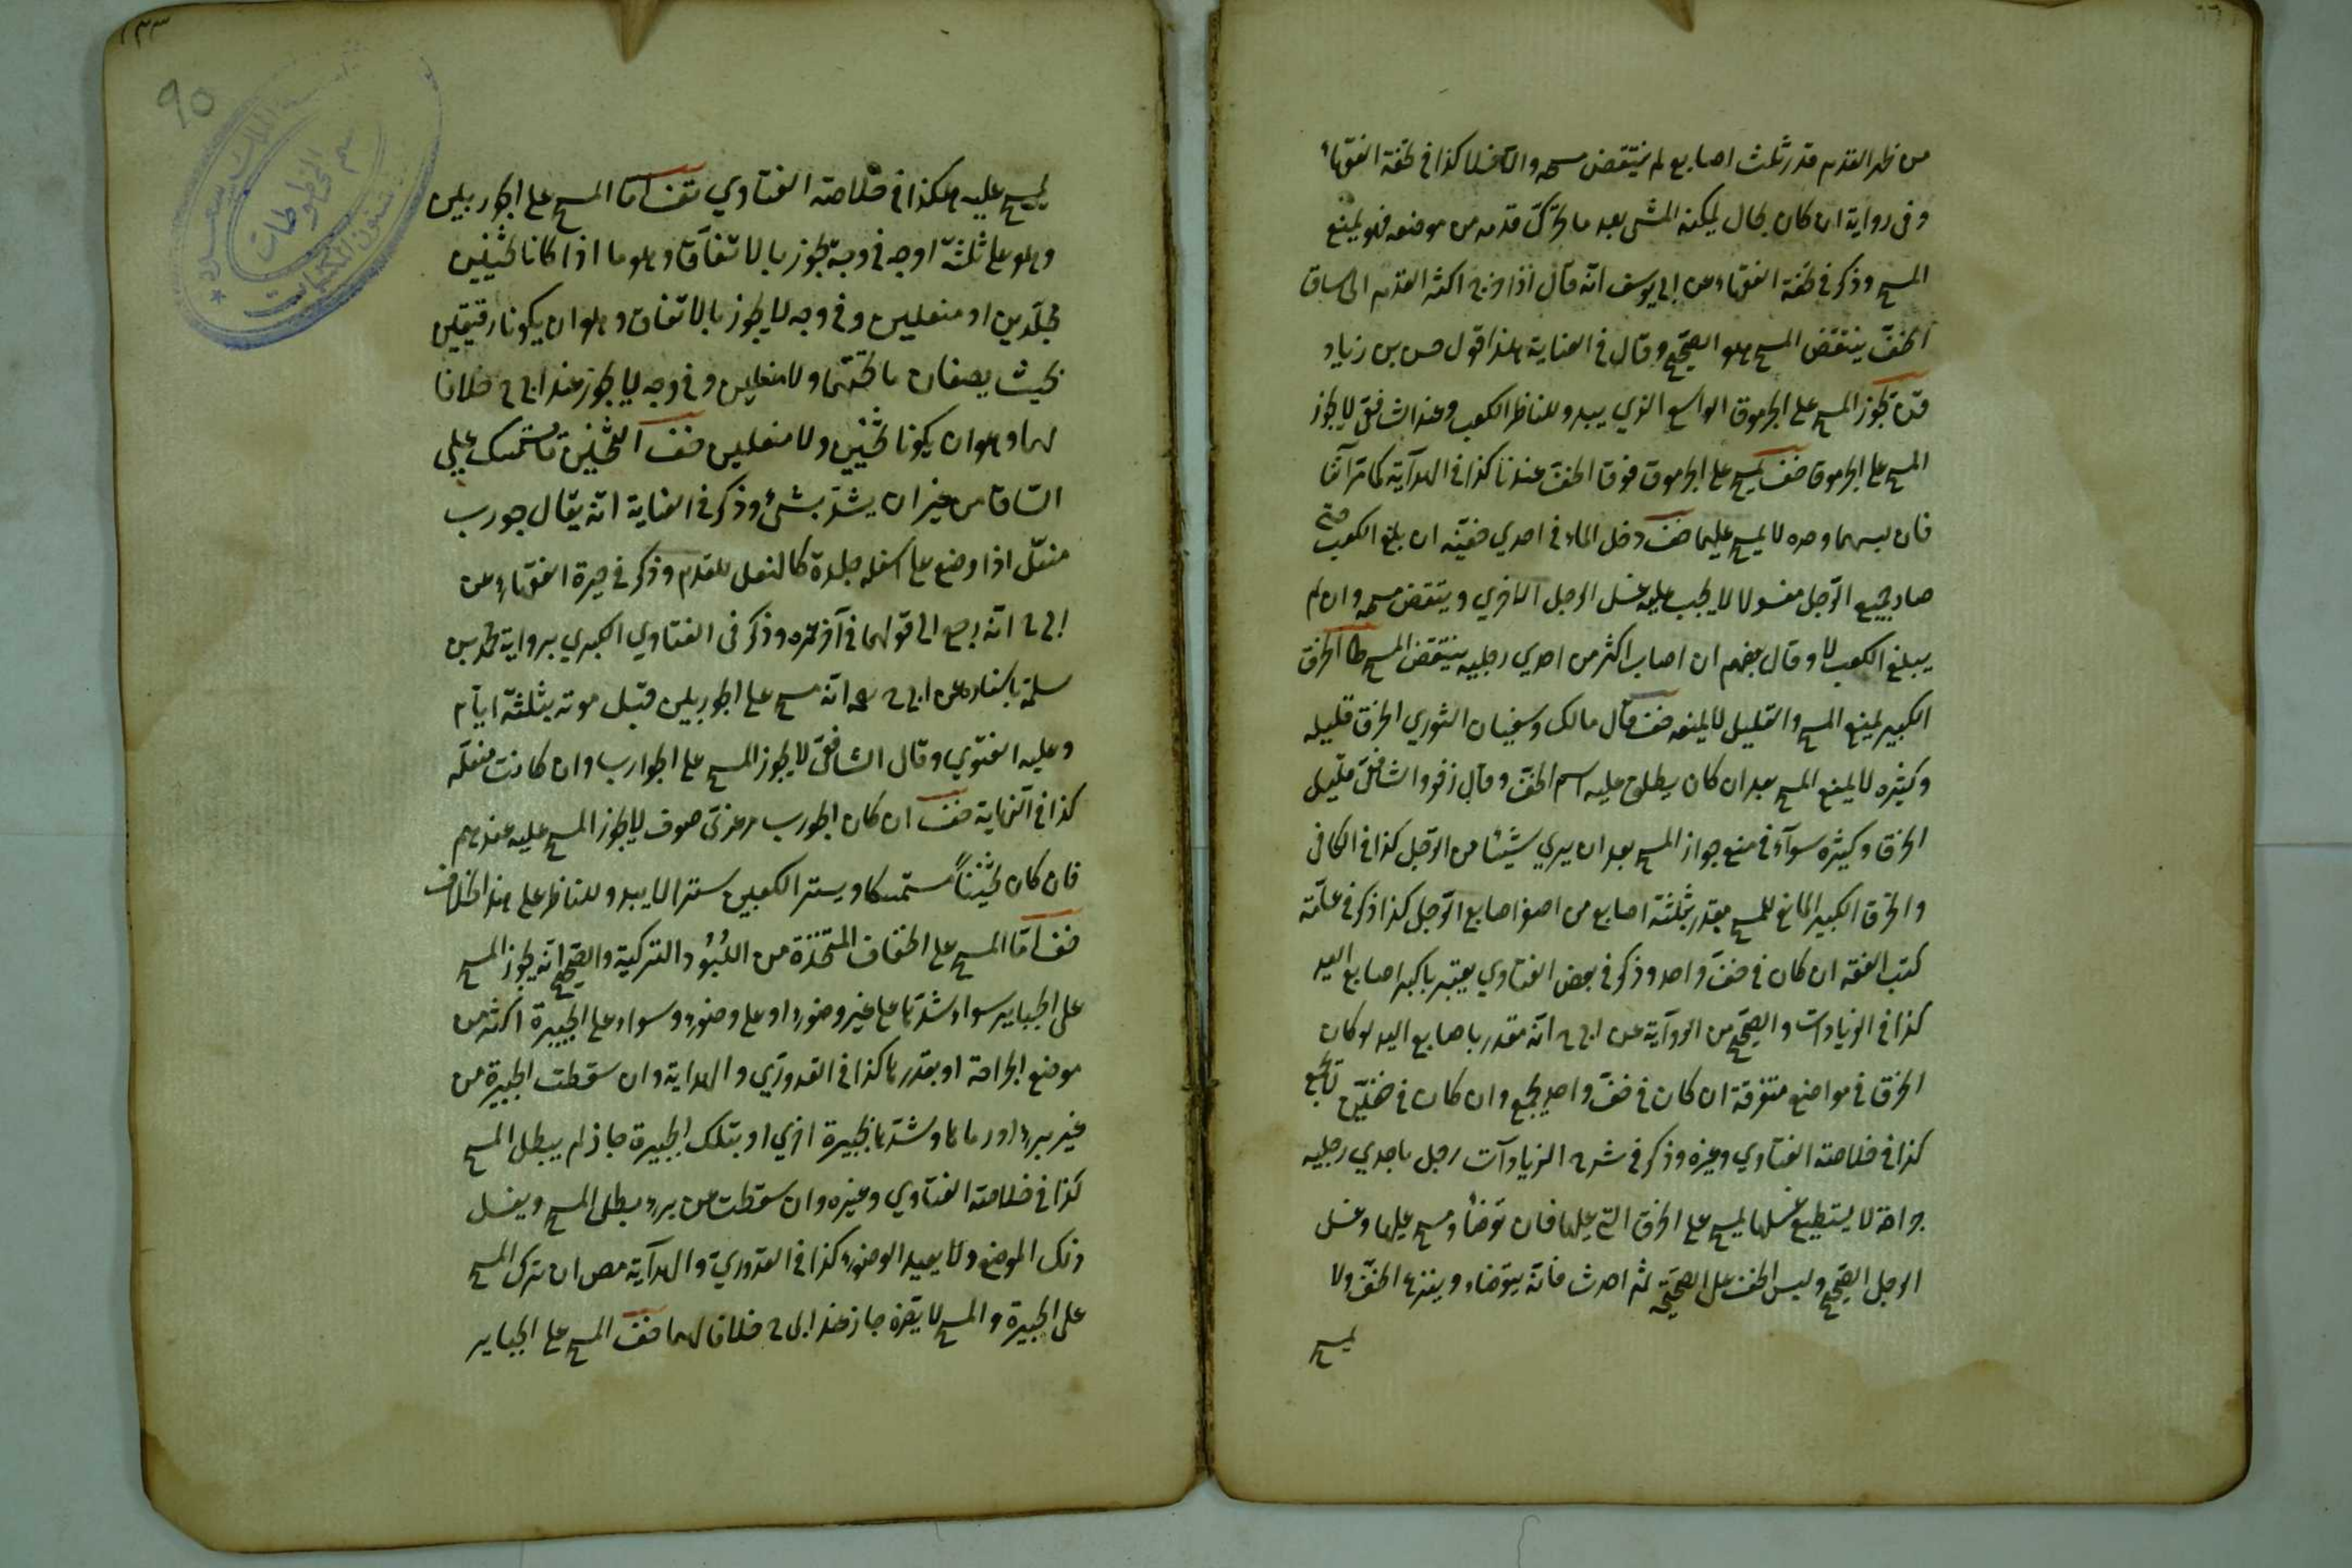 من ظهر القدم قدر ثلث اصابع لم ينتقض مسحه والا فلا كذا في تحفة الفقهاء
وفي رواية ان كان بحال يمكنه المشي بعد ما تحرك قدمه من موضعه فلو يمنع
المسح وذكر في تحفة الفقهاء عن ابي يوسف انه قال اذا خرج اكثر القدم الى ساق
الخف ينتقض المسح هو الصحيح وقال في العناية هذا قول حسن بن زياد
يجوز المسح على الجرموق الواسع الذي يبدو للناظر الكعب وعند الشافعي لا يجوز
المسح على الجرموق خف يمسح على الجرموق فوق الخف عندنا كذا في الهداية كما مر آنفا
فان لبسهما وحده لا يمسح عليهما خف دخل الماء في احدي خفيه ان بلغ الكعب حتي
صار جميع الرجل مغسولا لا يجب عليه غسل الرجل الاخري وينتقض مسحه وان لم
يبلغ الكعب لا وقال بعضهم ان اصاب اكثر من احدي رجليه ينتقض المسح ط الخرق
الكبير يمنع المسح والقليل لا يمنعه خف قال مالك وسفيان الثوري الخرق قليله
وكثيره لا يمنع المسح بعد ان كان يطلق عليه اسم الخف وقال زفر والشافعي قليل
الخرق وكثيره سوآء في منع جواز المسح بعد ان يري شيئا من الرجل كذا في الكافي
والخرق الكبير المانع للمسح بقدر ثلثة اصابع من اصغر اصابع الرجل كذا ذكر في عامة
كتب الفقه ان كان في خف واحد وذكر في بعض الفتاوي يعتبر باكبر اصابع اليد
كذا في الزيادات والصحيح من الرواية عن ابي ح انه مقدر باصابع اليد لو كان
الخرق في مواضع متفرقة ان كان في خف واحد يجمع وان كان في خفين لا يجمع
كذا في خلاصة الفتاوي وغيره وذكر في شرح الزيادات رجل باحدي رجليه
جراحة لا يستطيع غسلها يمسح على الخرق التي عليها فان توضأ ومسح عليها وغسل
الرجل الصحيح ولبس الخف على الصحيحة ثم احدث فانه يتوضاء وينزع الخف ولا
يمسح
يمسح عليه هكذا في خلاصة الفتاوي خف اما المسح على الجوربين
وهو على ثلثة اوجه في وجه يجوز بالاتفاق وهو ما اذا كانا ثخينين
مجلدين او منعلين وفي وجه لا يجوز بالاتفاق وهو ان يكونا رقيقين
بحيث يصفان ما تحتهما ولا منعلين وفي وجه لا يجوز عند ابي ح خلافا
لهما وهو ان يكونا ثخينين ولا منعلين خف الثخين ما يستمسك علي
الساق من غير ان يشد بشئ وذكر في العناية انه يقال جورب
منعل اذا وضع على اسفله جلدة كالنعل للقدم وذكر في حيرة الفقهاء عن
ابي ح انه رجع الى قولهما في آخر عمره وذكر في الفتاوي الكبري برواية محمد بن
سلمة باسناده عن ابي ح رحمه انه مسح على الجوربين قبل موته بثلثة ايام
وعليه الفتوي وقال الشافعي لا يجوز المسح على الجوارب وان كانت منعلة
كذا في النهاية خف ان كان الجورب مرعزي صوف لا يجوز المسح عليه عندهم
فان كان ثخينا مستمسكا ويستر الكعبين سترا لا يبدو للناظر على هذا الخلاف
خف اما المسح على الخفاف المتخذة من اللبود التركية والصحيح انه يجوز المسح
على الجباير سواء شدها على غير وضوء او على وضوء وسواء على الجبيرة اكثر من
موضع الجراحة او بقدرها كذا في القدوري والهداية وان سقطت الجبيرة من
غير برء او رماها وشدها بجبيرة اخري او بتلك الجبيرة جاز لم يبطل المسح
كذا في خلاصة الفتاوي وغيره وان سقطت من برء يبطل المسح ويغسل
ذلك الموضع ولا يعيد الوضوء كذا في القدوري والهداية مص ان ترك المسح
على الجبيرة والمسح لا يضره جاز عند ابي ح خلافا لهما خف المسح على الجباير
١٢٣
90
قسم المخطوطات